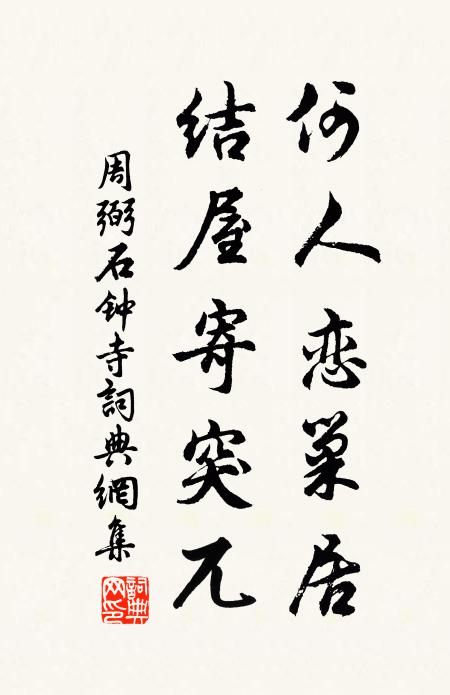 何人恋巢居
结屋寄突兀
周弼石钟寺詞典網集
詞典网印